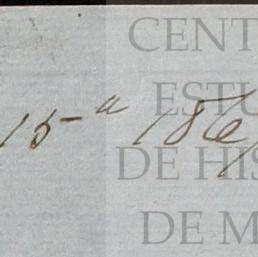 CENT
ESTU
15-a 186
DE HIS
DE M